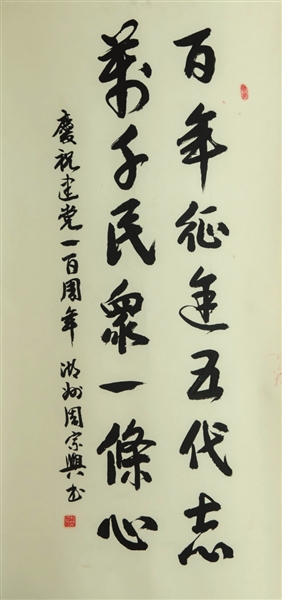 百年征途五代志
萬千民眾一條心
慶祝建党一百周年 湖州周宗興书